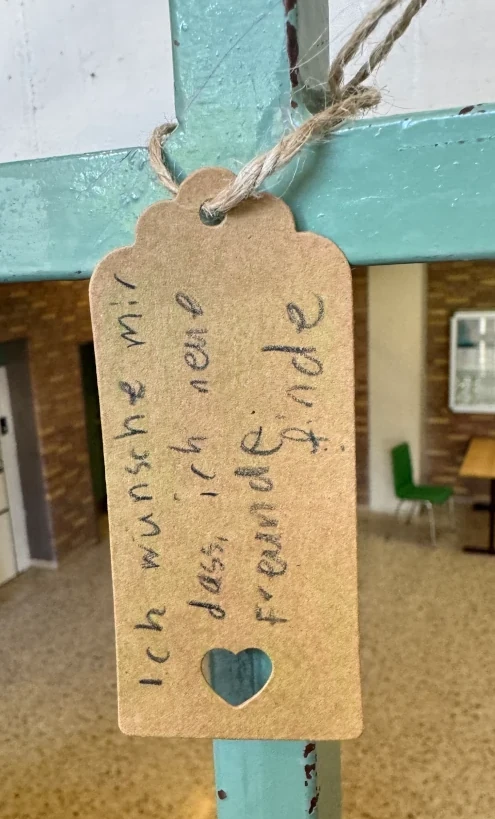 Ich wünsche mir
dass, ich neue
Freunde.
finde